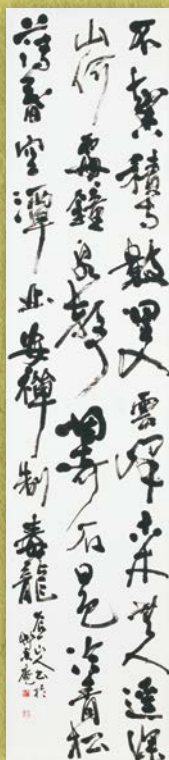 不知香積寺數里入雲峰古木無人逕深
山何處鐘泉聲咽危石日色冷青松
薄暮空潭曲安禪制毒龍